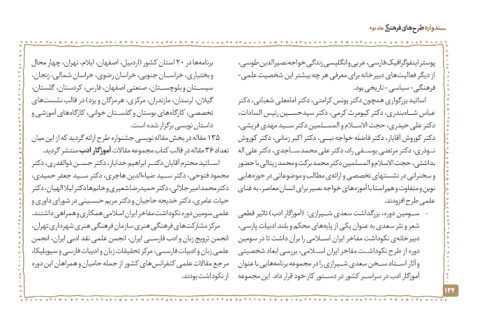 سند واره طرح‌های فرهنگی جلد دوم
پوستر اینفوگرافیک فارسی، عربی و انگلیسی زندگی خواجه نصیرالدین طوسی،
از دیگر فعالیت‌های دبیرخانه برای معرفی هر چه بیشتر این شخصیت علمی-
فرهنگی - سیاسی - تاریخی بود.
اساتید بزرگواری همچون دکتر یونس کرامتی، دکتر امامعلی شعبانی، دکتر
عباس شاه‌بندری، دکتر کیومرث کرمی، دکتر سیدحسین رئیس السادات،
دکتر علی حیدری، حجت الاسلام و المسلمین دکتر سید مهدی قریشی،
دکتر کوروش آقایار، دکتر فاضله خواجه نبی، دکتر اکبر زمانی، دکتر کوروش
نوذری، دکتر مرتضی یوسفی راد، دکتر علی محمد ساجدی، دکتر علی اله
بداشتی، حجت الاسلام و المسلمین دکتر محمد برکت و محمد زینالی با حضور
و سخنرانی در نشستهای تخصصی و ارائه‌ی مطالب و موضوعاتی در حوزه‌هایی
نوین و متفاوت و هم‌راستا با آموزه‌های خواجه نصیر برای انسان معاصر، به غنای
علمی طرح افزودند.
- سومین دوره، بزرگداشت سعدی شیرازی: (آموزگار ادب) تاثیر قطعی
شعر و نثر سعدی به عنوان یکی از پایه‌های محکم و بلند ادبیات پارسی،
دبیرخانه‌ی نکوداشت مفاخر ایران اسلامی را برآن داشت تا در سومین
دوره از طرح نکوداشت مفاخر ایران اسلامی، بررسی ابعاد شخصیتی
و آثار استاد سخن سعدی شیرازی را در مجموعه برنامه‌هایی با عنوان
آموزگار ادب در سراسر کشور در دستور کار خود قرار داد. این مجموعه
برنامه‌ها در ۲۰ استان کشور (اردبیل، اصفهان، ایلام، تهران، چهار محال
و بختیاری، خراسان جنوبی، خراسان رضوی، خراسان شمالی، زنجان،
سیستان و بلوچستان، صنعتی اصفهان، فارس، کردستان، گلستان،
گیلان، لرستان، مازندران، مرکزی، هرمزگان و یزد) در قالب نشست‌های
تخصصی، کارگاه‌های بوستان و گلستان خوانی، کارگاه‌های آموزشی و
داستان نویسی برگزار شده است.
۱۳۵ مقاله در بخش مقاله‌نویسی جشنواره طرح ارائه گردید که از این میان
تعداد ۳۶ مقاله در قالب کتاب مجموعه مقالات آموزگار ادب منتشر گردید.
اساتید محترم آقایان دکتر ابراهیم خدایار، دکتر حسن ذوالفقدری، دکتر
محمود فتوحی، دکتر سید ضیاءالدین هاجری، دکتر سید جعفر حمیدی،
دکتر محمد امیر جلالی، دکتر حمیدرضا شعیری و خانم‌ها دکتر لیلا الهیان، دکتر
حیات عامری، دکتر خدیجه حاجیان و دکتر مریم حسینی در شورای داوری و
علمی سومین دوره نکوداشت مفاخر ایران اسلامی همکاری و همراهی داشتند.
مرکز مشارکت‌های فرهنگی هنری سازمان فرهنگی هنری شهرداری تهران،
انجمن ترویج زبان و ادب فارسی ایران، انجمن علمی نقد ادبی ایران، انجمن
علمی زبان و ادبیات فارسی، مرکز تحقیقات زبان و ادبیات فارسی و سیویلیکا،
مرجع مقالات علمی کنفرانس‌های کشور از جمله حامیان و همراهان این دوره
از نکوداشت بودند.
۱۴۴